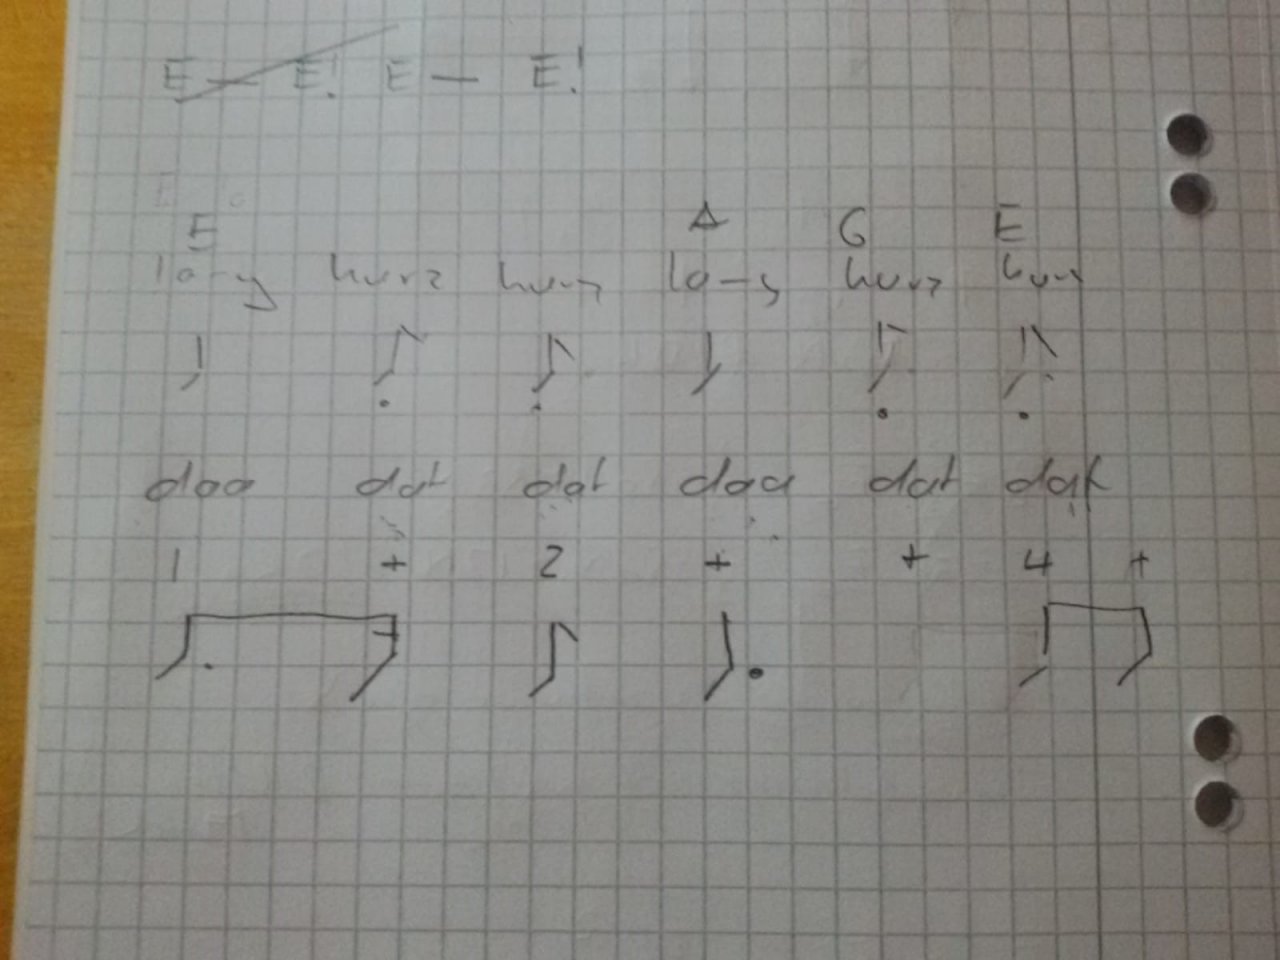 E — E! E — E!
E A G E
lang kurz kurz lang kurz kurz
daa dat dat daa dat dat
1 + 2 + + 4 +